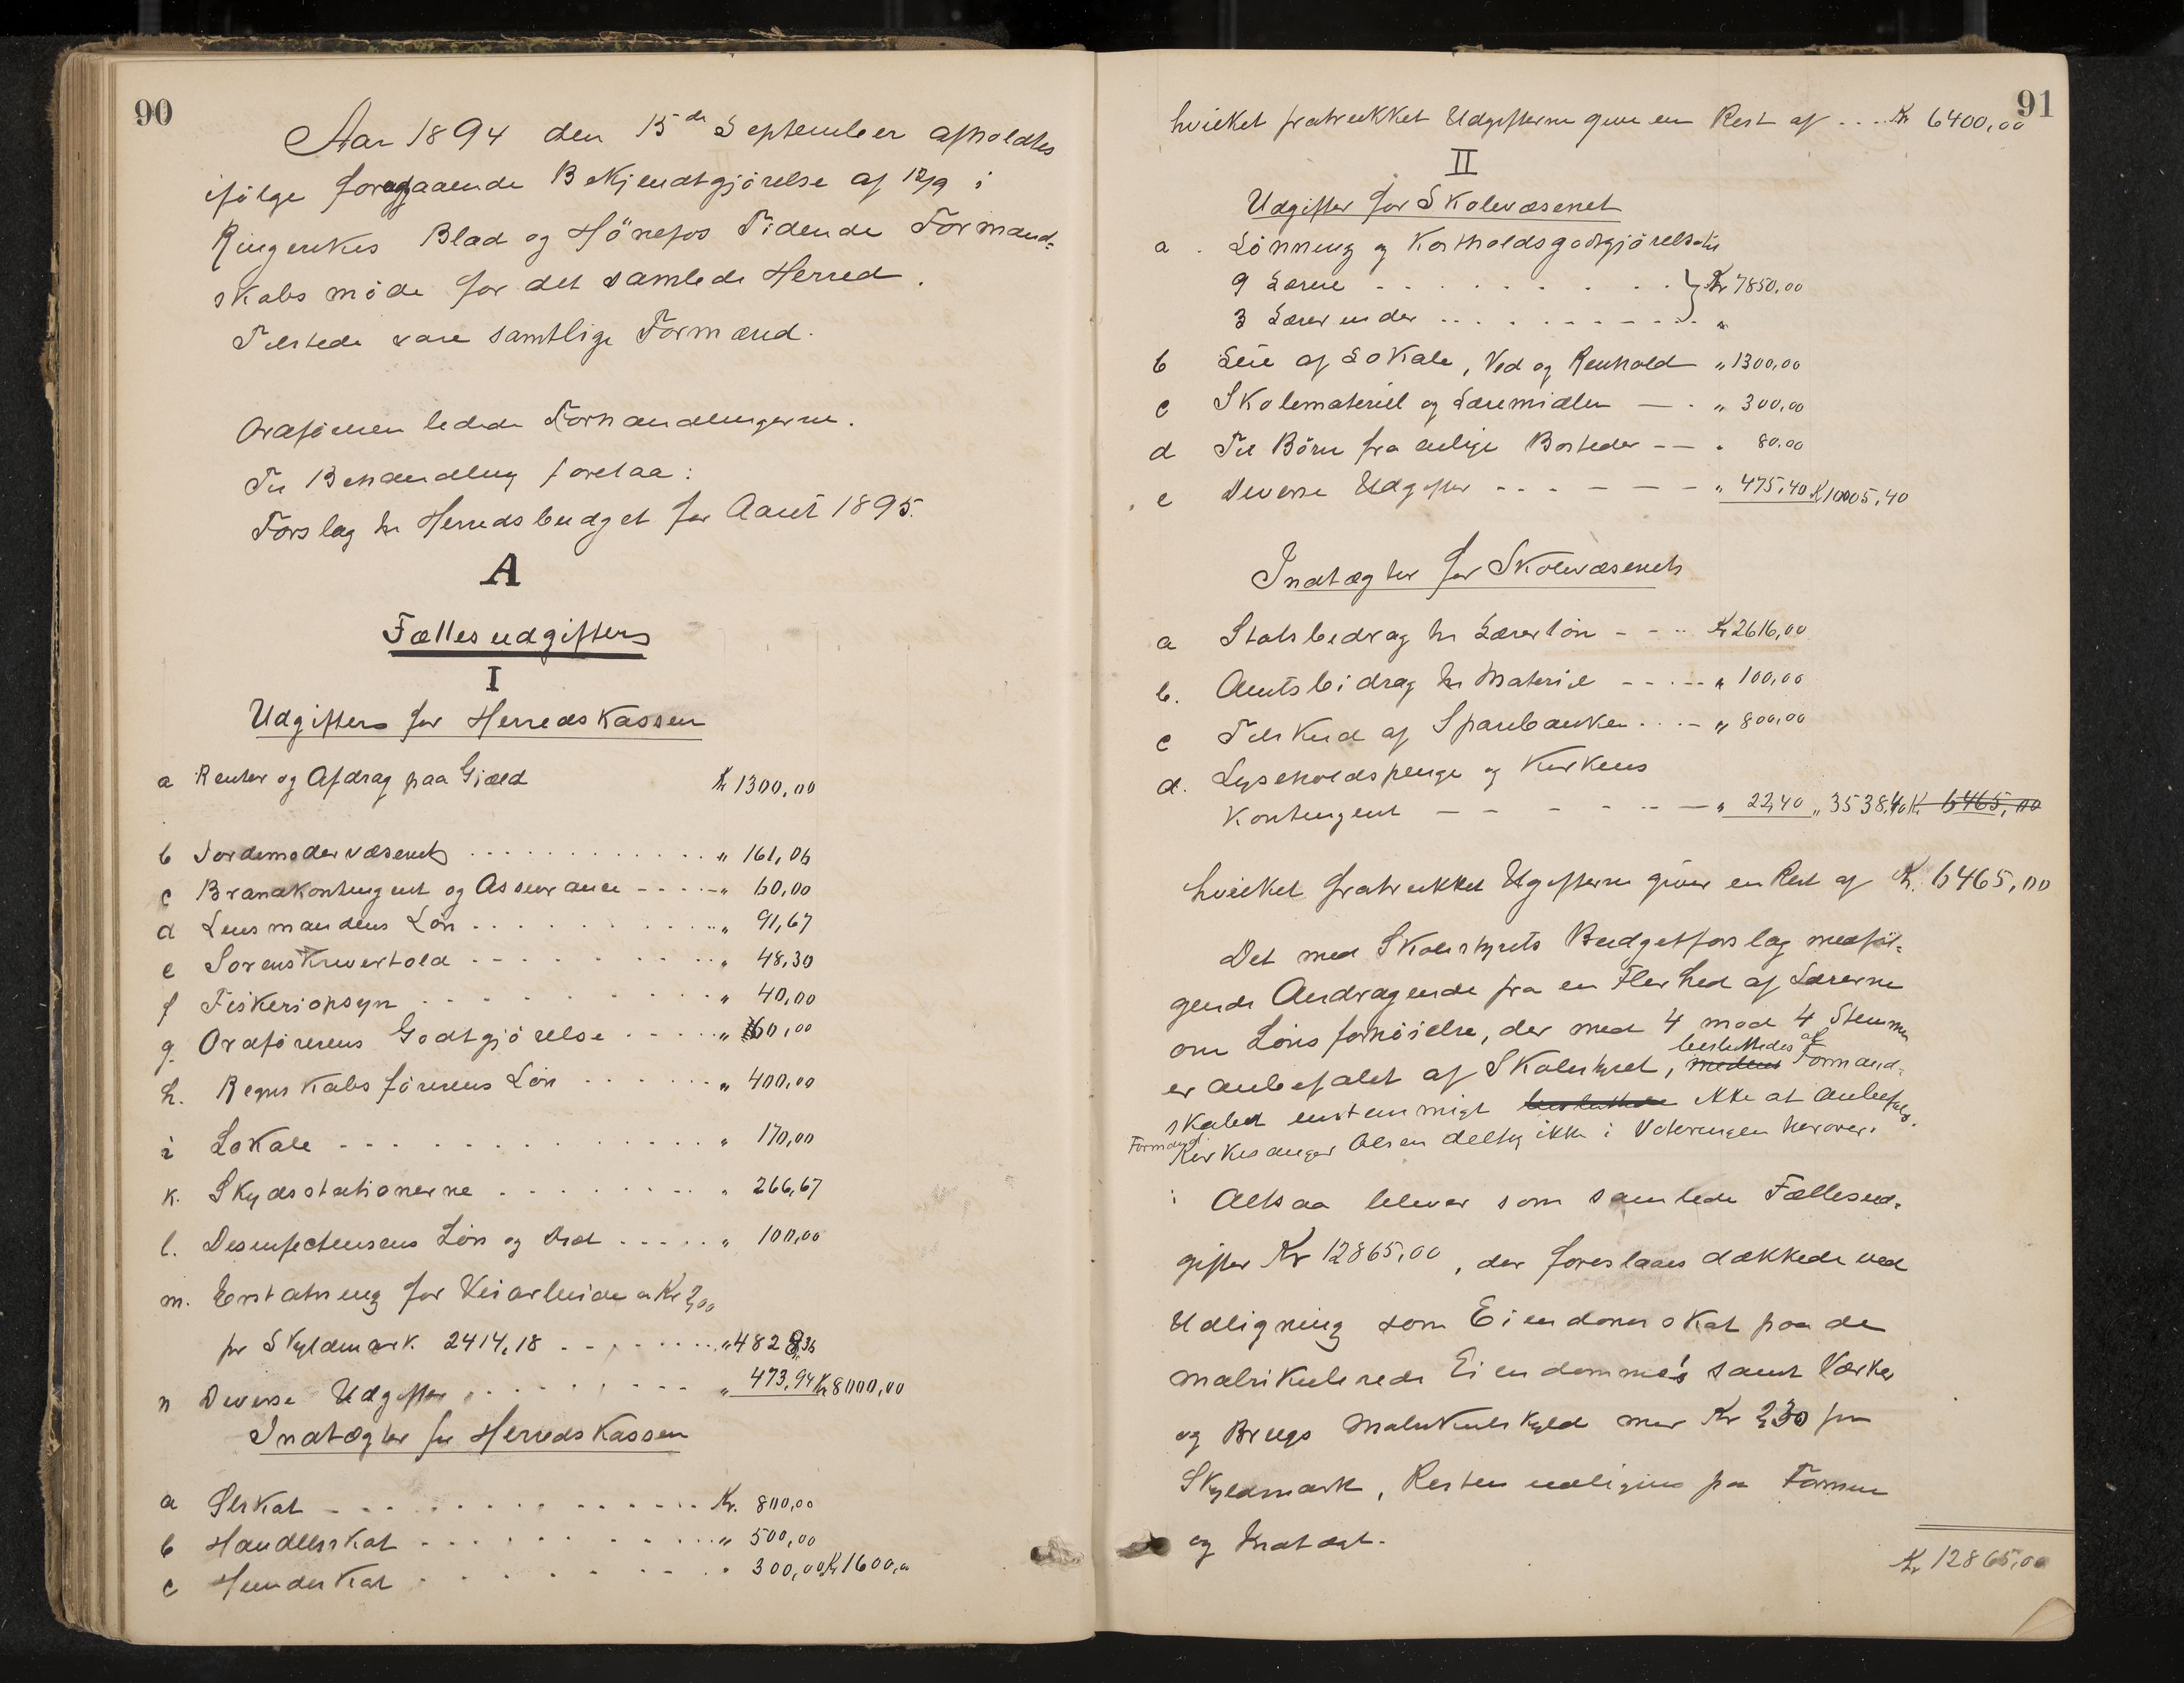 90
Aar 1894 den 15de September afholdtes
ifölge foregaaende Bekjendtgjörelse af 12/9 i
Ringerikes Blad og Hönefos Tidende Formand-
skabsmöde for det samlede Herred.
Tilstede vare samtlige Formænd.
Ordføreren ledede Forhandlingerne.
Til Behandling foretaa:
Forslag til Herredsbudget for Aaret 1895.
A
Fællesudgifter
I
Udgifter for Herredskassen
a Renter og Afdrag paa Gjæld Kr 1300,00
b Jordemodervæsenet " 161,06
c Brandkontingent og Assurance " 60,00
d Lensmandens Løn " 91,67
e Sorenskrivertold " 48,30
f Fiskeriopsyn " 40,00
g. Ordførerens Godtgjörelse " 60,00
h. Regnskabsförerens Løn " 400,00
i Lokale " 170,00
k. Skydsstationerne " 266,67
l. Desinfecteurens Løn og 100,00
m. Erstatning for Veiarbeide a Kr 2,00
pr Skyldmark. 2414,18 " 4828,36
n Diverse Udgifter " 473,94 Kr 8000,00
Indtægter for Herredskassen
a Ølskat Kr. 800,00
b Handelsskat " 500,00
c Hundeskat " 300,00 Kr 1600,00
91
hvilket fratrukket Udgifterne giver en Rest af Kr 6400,00
II
Udgifter for Skolevæsenet
a. Lönning og Kostholdsgodtgjörelse til
9 Lærere } Kr 7850,00
3 Lærerinder "
b Leie af Lokale, Ved og Renhold " 1300,00
c Skolemateriel og Læremidler " 300,00
d Til Börn fra Bosteder 80,00
e Diverse Udgifter " 475,40 Kr 10005,40
Indtægter for Skolevæsenet
a Statsbidrag til Lærerløn Kr 2616,00
b. Amtsbidrag til Materiel " 100,00
c Tilskud af Sparebanken " 800,00
d. Lyseholdspenge og Kirkens
Kontingent " 22,40 " 3538,40 Kr 6465,00
hvilket fratrukket Ugifterne giver en Rest af Kr. 6465,00
Det med Skolestyrets Budgetforslag medföl-
gende Andragende fra en Flerhed af Lærerne
om Lønsforhöielse, der med 4 mod 4 Stemmer
besluttedes af
er anbefalet af Skolestyret, medens Formand-
skabet enstemmigt besluttede ikke at anbefales.
Formand Kirkesanger Olsen deltog ikke i Voteringen herover.
Altsaa bliver som samlede Fællesud-
gifter Kr 12865,00, der foreslaaes dækkede ved
Udligning som Eiendomsskat paa de
matrikulerede Eiendomme's samt Værker
og Brugs Matrikulskyld med Kr 2,30 pr
Skyldmark, Resten udlignes paa Formue
og Indtægt.
Kr 12865,00